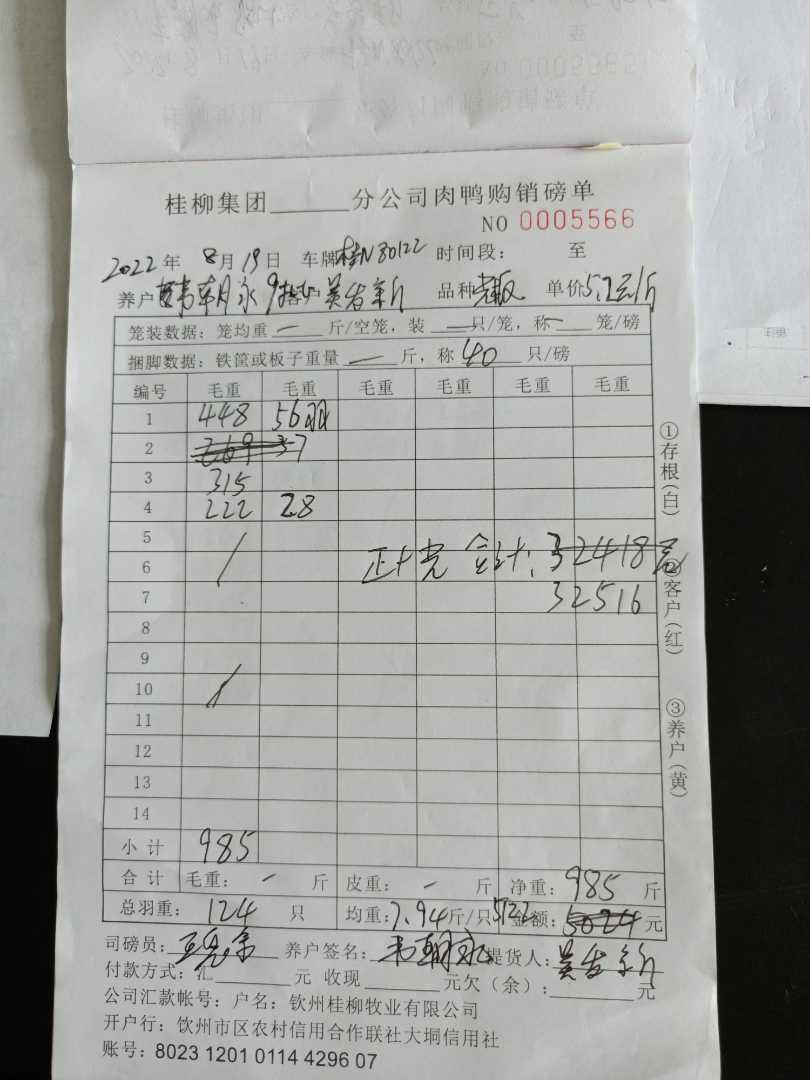 桂柳集团______分公司肉鸭购销磅单
NO 0005566
2022年 8月19日 车牌桂N80122 时间段： 至
养户 韦朝永 客户 吴发新 品种 单价5.2元/斤
笼装数据：笼均重 — 斤/空笼，装 — 只/笼，称 — 笼/磅
捆脚数据：铁筐或板子重量 — 斤，称 40 只/磅
编号 毛重 毛重 毛重 毛重 毛重 毛重
1 448 56羽
2 269 37
3 315
4 222 28
5
6 合计：32418
7 32516
8
9
10
11
12
13
14
小计 985
合计 毛重： - 斤 皮重： - 斤 净重：985 斤
总羽重： 124 只 均重：7.94斤/只 5122 金额：5024 元
司磅员： 养户签名：韦朝永 提货人：吴发新
付款方式：汇______元 收现______元欠（余）：______元
公司汇款帐号：户名：钦州桂柳牧业有限公司
开户行：饮州市区农村信用合作联社大垌信用社
账号：8023 1201 0114 4296 07
①存根（白）
②客户（红）
③养户（黄）